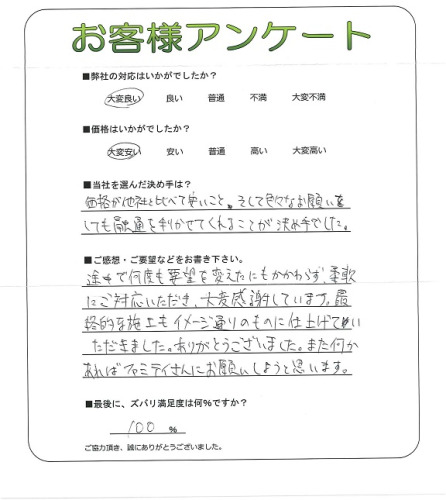 お客様アンケート
■弊社の対応はいかがでしたか?
大変良い 良い 普通 不満 大変不満
■価格はいかがでしたか?
大変安い 安い 普通 高い 大変高い
■当社を選んだ決め手は?
価格が他社と比べて安いこと。そして色々なお願いを
しても融通を利かせてくれることが決め手でした。
■ご感想・ご要望などをお書き下さい。
途中で何度も要望を変えたにもかかわらず、柔軟
にご対応いただき、大変感謝しています。最
終的な施工もイメージ通りのものに仕上げてい
ただきました。ありがとうございました。また何か
あればファミティさんにお願いしようと思います。
■最後に、ズバリ満足度は何%ですか?
100 %
ご協力頂き、誠にありがとうございました。